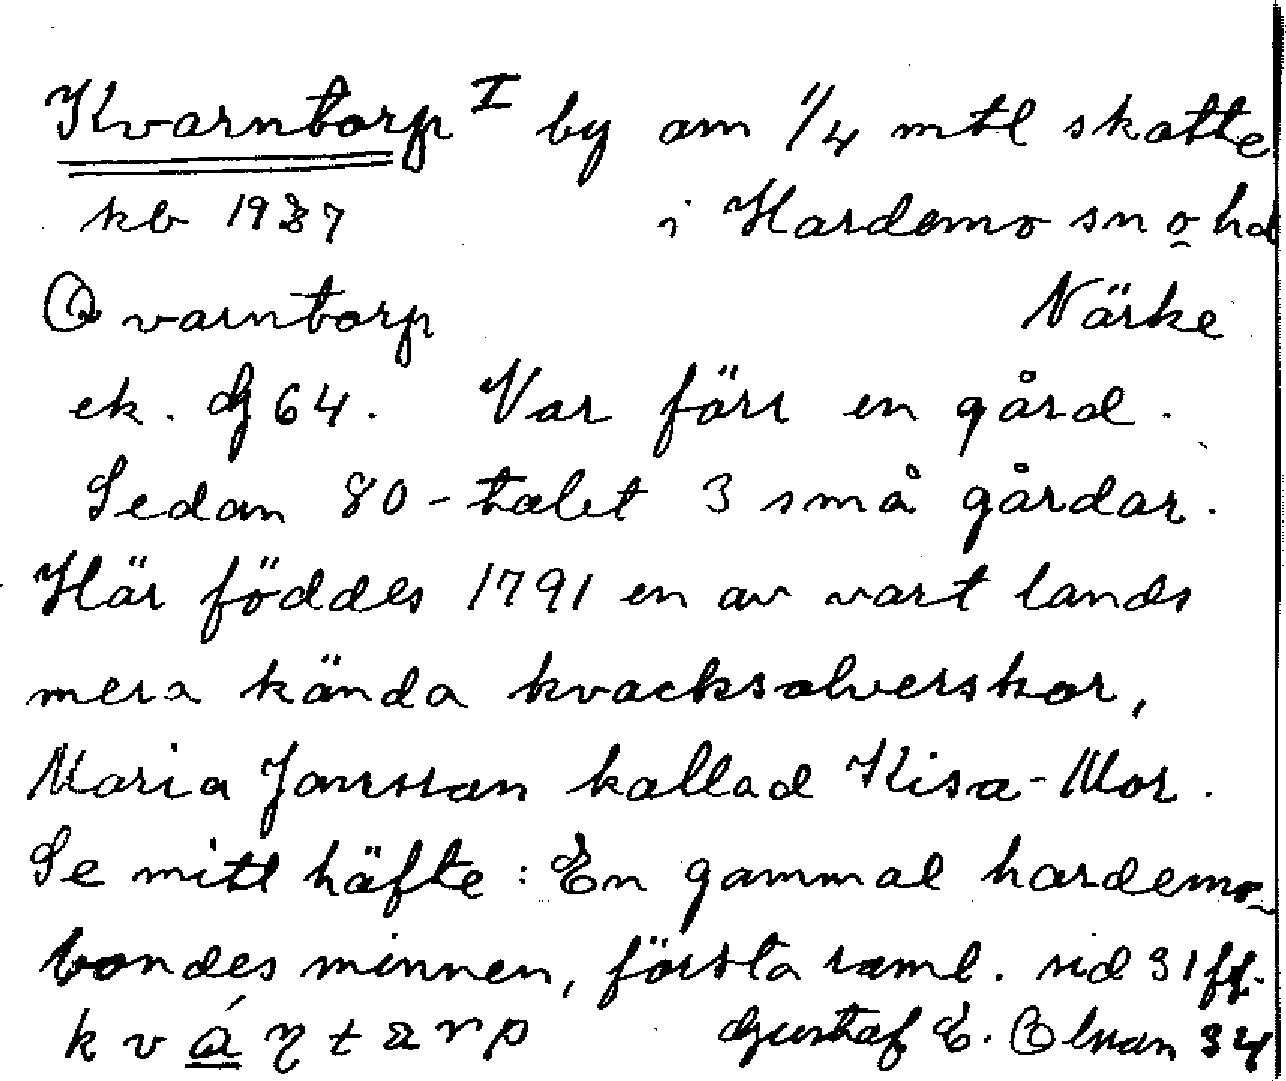 Kvarntorp I by om 1/4 mtl skatte
kb 1937 i Hardemo sn o hd
Qvarntorp Närke
ek. dj 64. Var förr en gård.
Sedan 80-talet 3 små gårdar.
Här föddes 1791 en av vart lands
mera kända kvacksalverskor,
Maria Jansson kallad Kisa-Mor.
Se mitt häfte: En gammal hardemo-
bondes minnen, första saml. sid 31 ff.
Gustaf E. Olsson 34